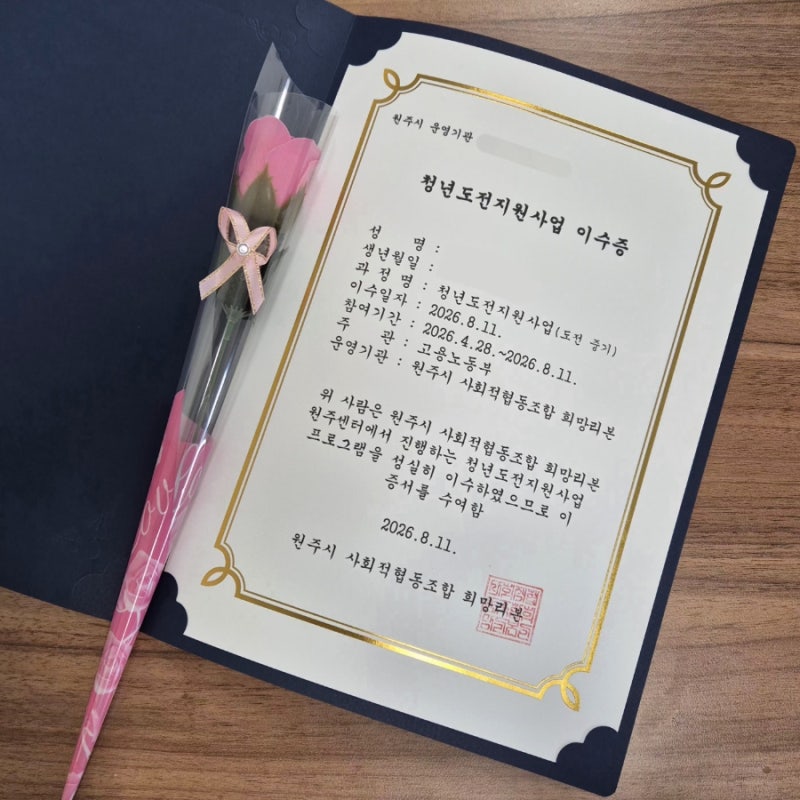 원주시 운영기관
청년도전지원사업 이수증
성 명 :
생년월일 :
과 정 명 : 청년도전지원사업(도전 중기)
이수일자 : 2026.8.11.
참여기간 : 2026.4.28.~2026.8.11.
주 관 : 고용노동부
운영기관 : 원주시 사회적협동조합 희망리본
위 사람은 원주시 사회적협동조합 희망리본
원주센터에서 진행하는 청년도전지원사업
프로그램을 성실히 이수하였으므로 이
증서를 수여함
2026.8.11.
원주시 사회적협동조합 희망리본